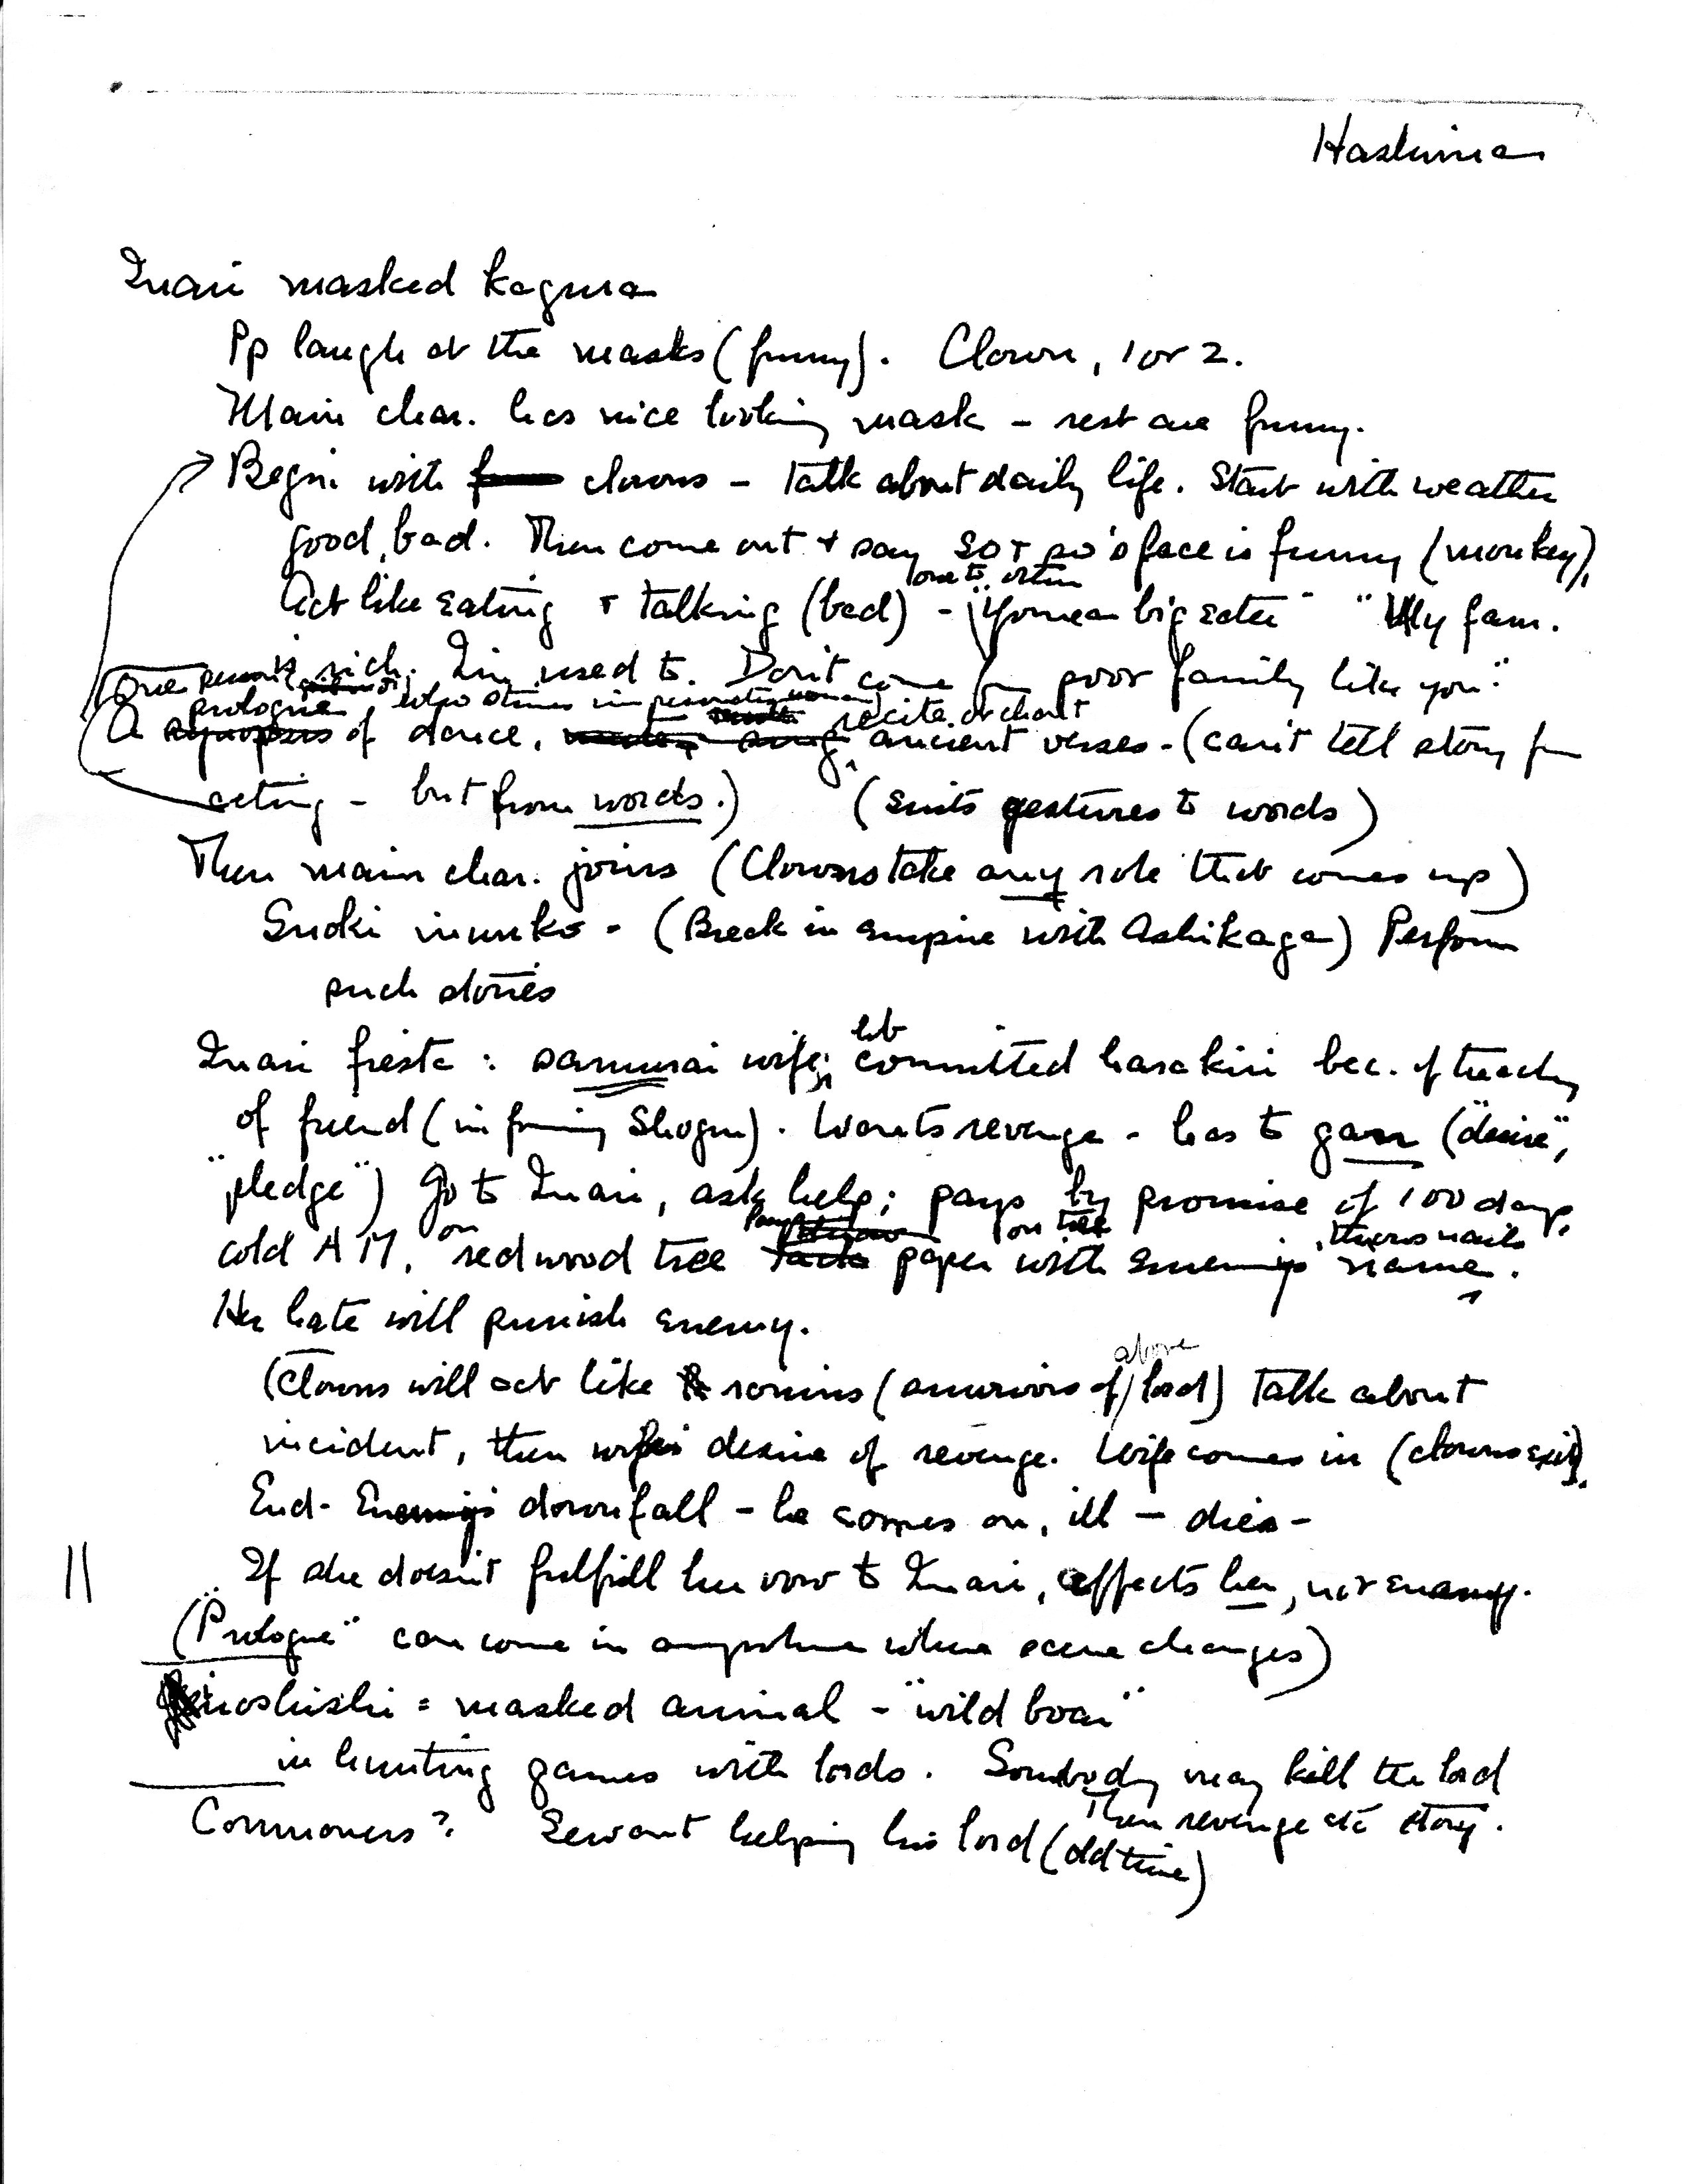 Hashima
Inari masked kagura
Pp laugh at the masks (funny). Clown, 1 or 2.
Main char. has nice looking mask - rest are funny.
Begin with clowns - talk about daily life. Start with weather
good, bad. Then come out + say so + so's face is funny (monkey),
one to other
Act like eating + talking (bad) - "You're a big eater" "My fam.
is rich. I'm used to. Don't come fm poor family like you."
(One person
prologue, who stands impersonating woman)
recite or chant
A synopsis of dance, ancient verses - (can't tell story fm
acting - but from words.) (Suits gestures to words)
Then main char. joins (Clowns take any role that comes up)
(Break in empire with Ashikaga) Perform
such stories
hb
Inari fiesta : samurai wife; committed harakiri bec. of treachy
of friend (in fming Shogun). Wants revenge - has to gan ("desire",
"pledge") Go to Inari, ask help; pays by promise of 100 days,
cold AM, on redwood tree paper with enemy's name.
on tree
, throws nails
Her hate will punish enemy.
(Clowns will act like ronins (survivors of above lord) talk about
incident, then wife's desire of revenge. Wife comes in (clowns exit).
End - Enemy's downfall - he comes on, ill - dies -
|| If she doesn't fulfill her vow to Inari, affects her, not enemy.
("Prologue" can come in anywhere where scene changes)
inoshishi = masked animal - "wild boar"
in hunting games with lords. Somebody may kill the lord
Then revenge etc story.
Commoners? Servant helping his lord (old time)